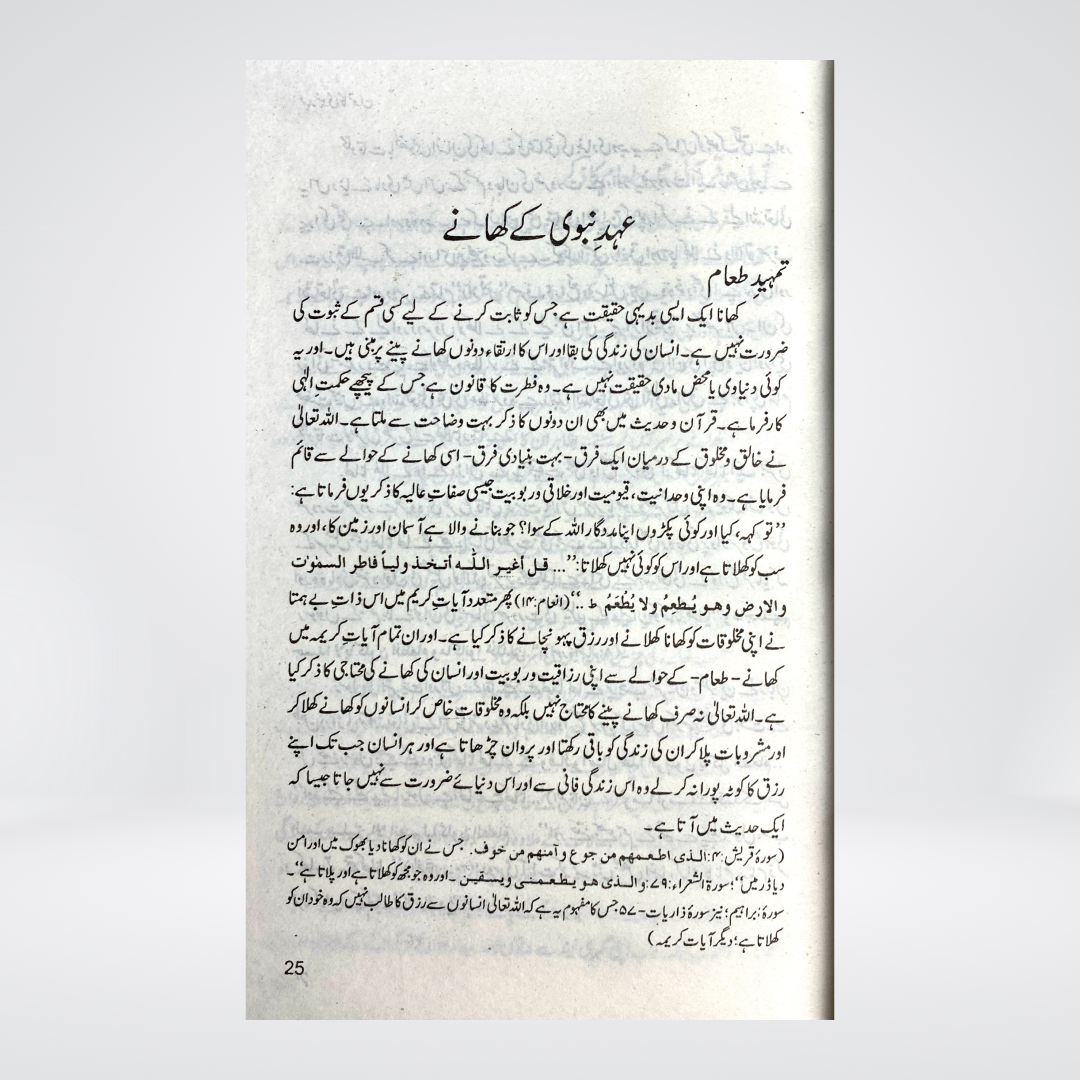 عہدِ نبوی کے کھانے
تمہیدِ طعام
کھانا ایک ایسی بدیہی حقیقت ہے جس کو ثابت کرنے کے لیے کسی قسم کے ثبوت کی
ضرورت نہیں ہے۔ انسان کی زندگی کی بقا اور اس کا ارتقاء دونوں کھانے پینے پر مبنی ہیں۔ اور یہ
کوئی دنیاوی یا محض مادی حقیقت نہیں ہے۔ وہ فطرت کا قانون ہے جس کے پیچھے حکمتِ الٰہی
کارفرما ہے۔ قرآن و حدیث میں بھی ان دونوں کا ذکر بہت وضاحت سے ملتا ہے۔ اللہ تعالیٰ
نے خالق و مخلوق کے درمیان ایک فرق - بہت بنیادی فرق - اسی کھانے کے حوالے سے قائم
فرمایا ہے۔ وہ اپنی وحدانیت، قیومیت اور خلاقی و ربوبیت جیسی صفاتِ عالیہ کا ذکر یوں فرماتا ہے:
”تو کہہ، کیا اور کوئی پکڑوں اپنا مددگار اللہ کے سوا؟ جو بنانے والا ہے آسمان اور زمین کا، اور وہ
سب کو کھلاتا ہے اور اس کو کوئی نہیں کھلاتا: ”... قل أغیر اللّٰہ أتخذ ولیاً فاطر السمٰوٰت
والارض وھو یُطعِمُ ولا یُطْعَمُ ط ..“ (انعام: ۱۴) پھر متعدد آیاتِ کریم میں اس ذاتِ بے ہمتا
نے اپنی مخلوقات کو کھانا کھلانے اور رزق پہونچانے کا ذکر کیا ہے۔ اور ان تمام آیاتِ کریمہ میں
کھانے - طعام - کے حوالے سے اپنی رزاقیت و ربوبیت اور انسان کی کھانے کی محتاجی کا ذکر کیا
ہے۔ اللہ تعالیٰ نہ صرف کھانے پینے کا محتاج نہیں بلکہ وہ مخلوقات خاص کر انسانوں کو کھانے کھلا کر
اور مشروبات پلا کر ان کی زندگی کو باقی رکھتا اور پروان چڑھاتا ہے اور ہر انسان جب تک اپنے
رزق کا کوٹہ پورا نہ کر لے وہ اس زندگی فانی سے اور اس دنیائے ضرورت سے نہیں جاتا جیسا کہ
ایک حدیث میں آتا ہے۔
(سورۂ قریش: ۴: الذی اطعمھم من جوع و آمنھم من خوف. جس نے ان کو کھانا دیا بھوک میں اور امن
دیا ڈر میں“؛ سورۃ الشعراء: ۷۹: و الذی ھو یطعمنی ویسقین۔ اور وہ جو مجھ کو کھلاتا ہے اور پلاتا ہے“۔
سورۂ ابراہیم؛ نیز سورۂ ذاریات- ۵۷ جس کا مفہوم یہ ہے کہ اللہ تعالیٰ انسانوں سے رزق کا طالب نہیں کہ وہ خود ان کو
کھلاتا ہے؛ دیگر آیات کریمہ)
25